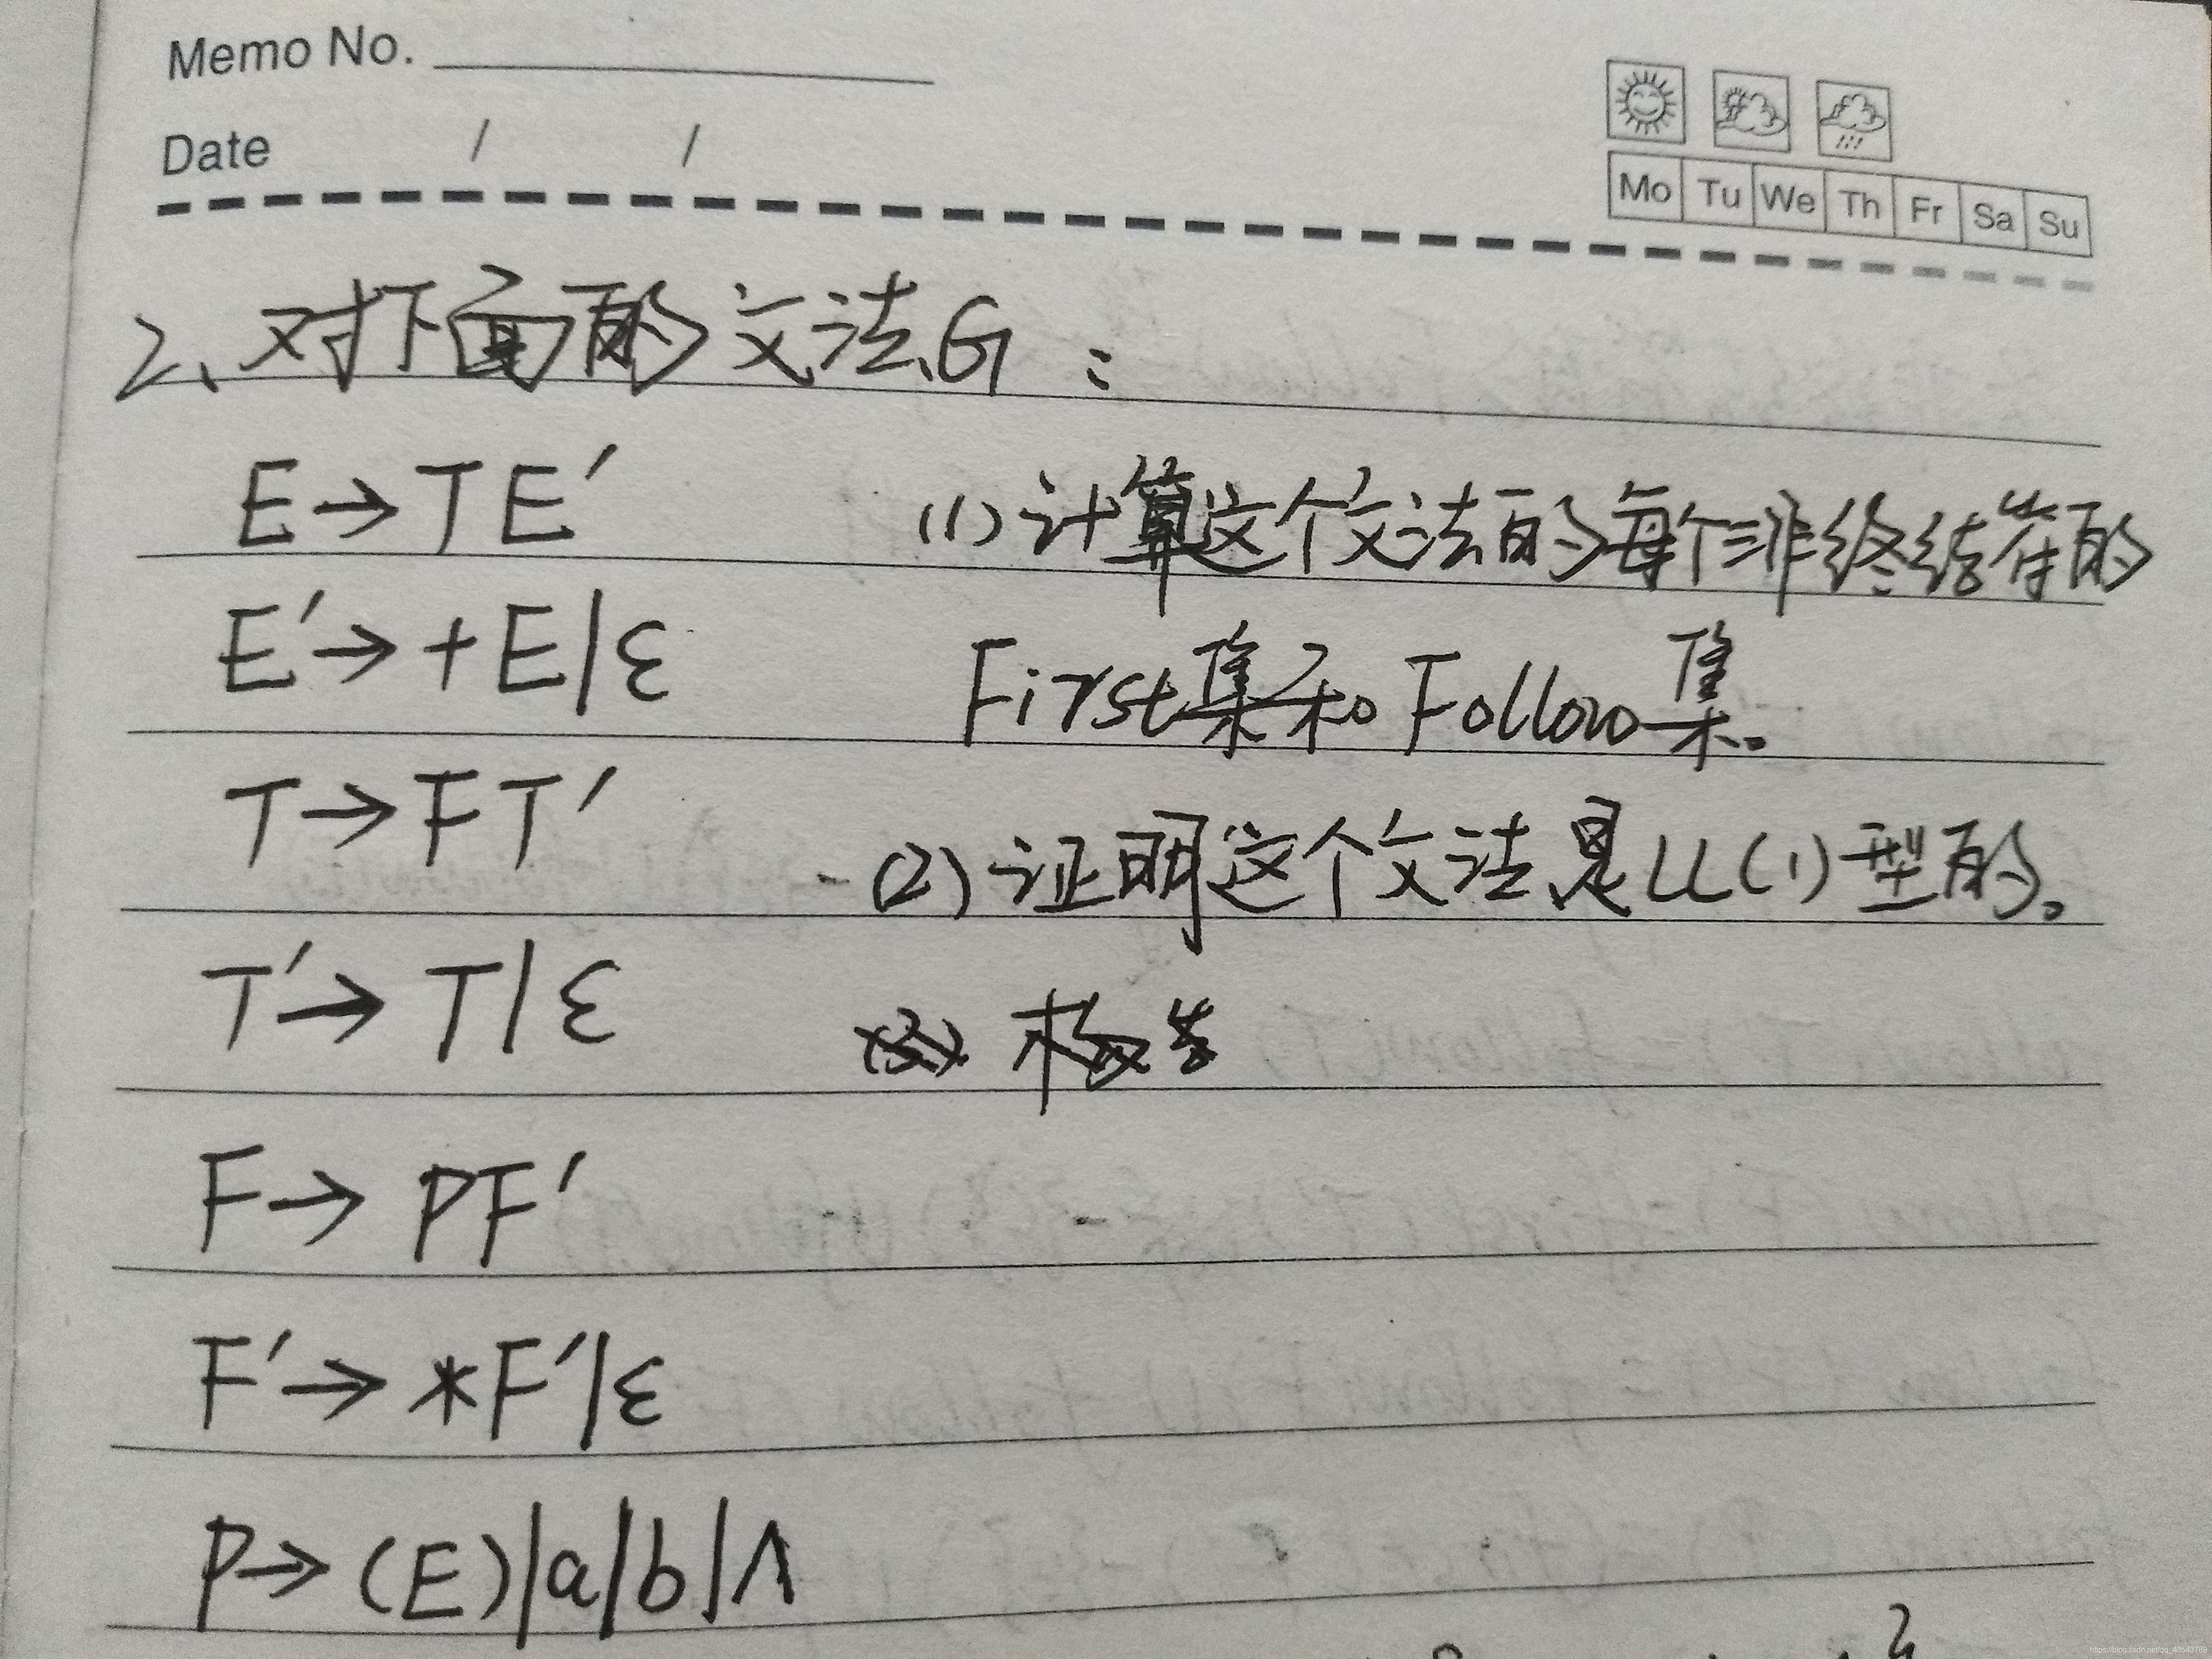 Memo No.
Date / /
Mo Tu We Th Fr Sa Su
2、对下面的文法G：
E→TE′
(1)计算这个文法的每个非终结符的
E′→+E|ε
First集和Follow集。
T→FT′
(2)证明这个文法是LL(1)型的。
T′→T|ε
F→PF′
F′→*F′|ε
P→(E)|a|b|∧